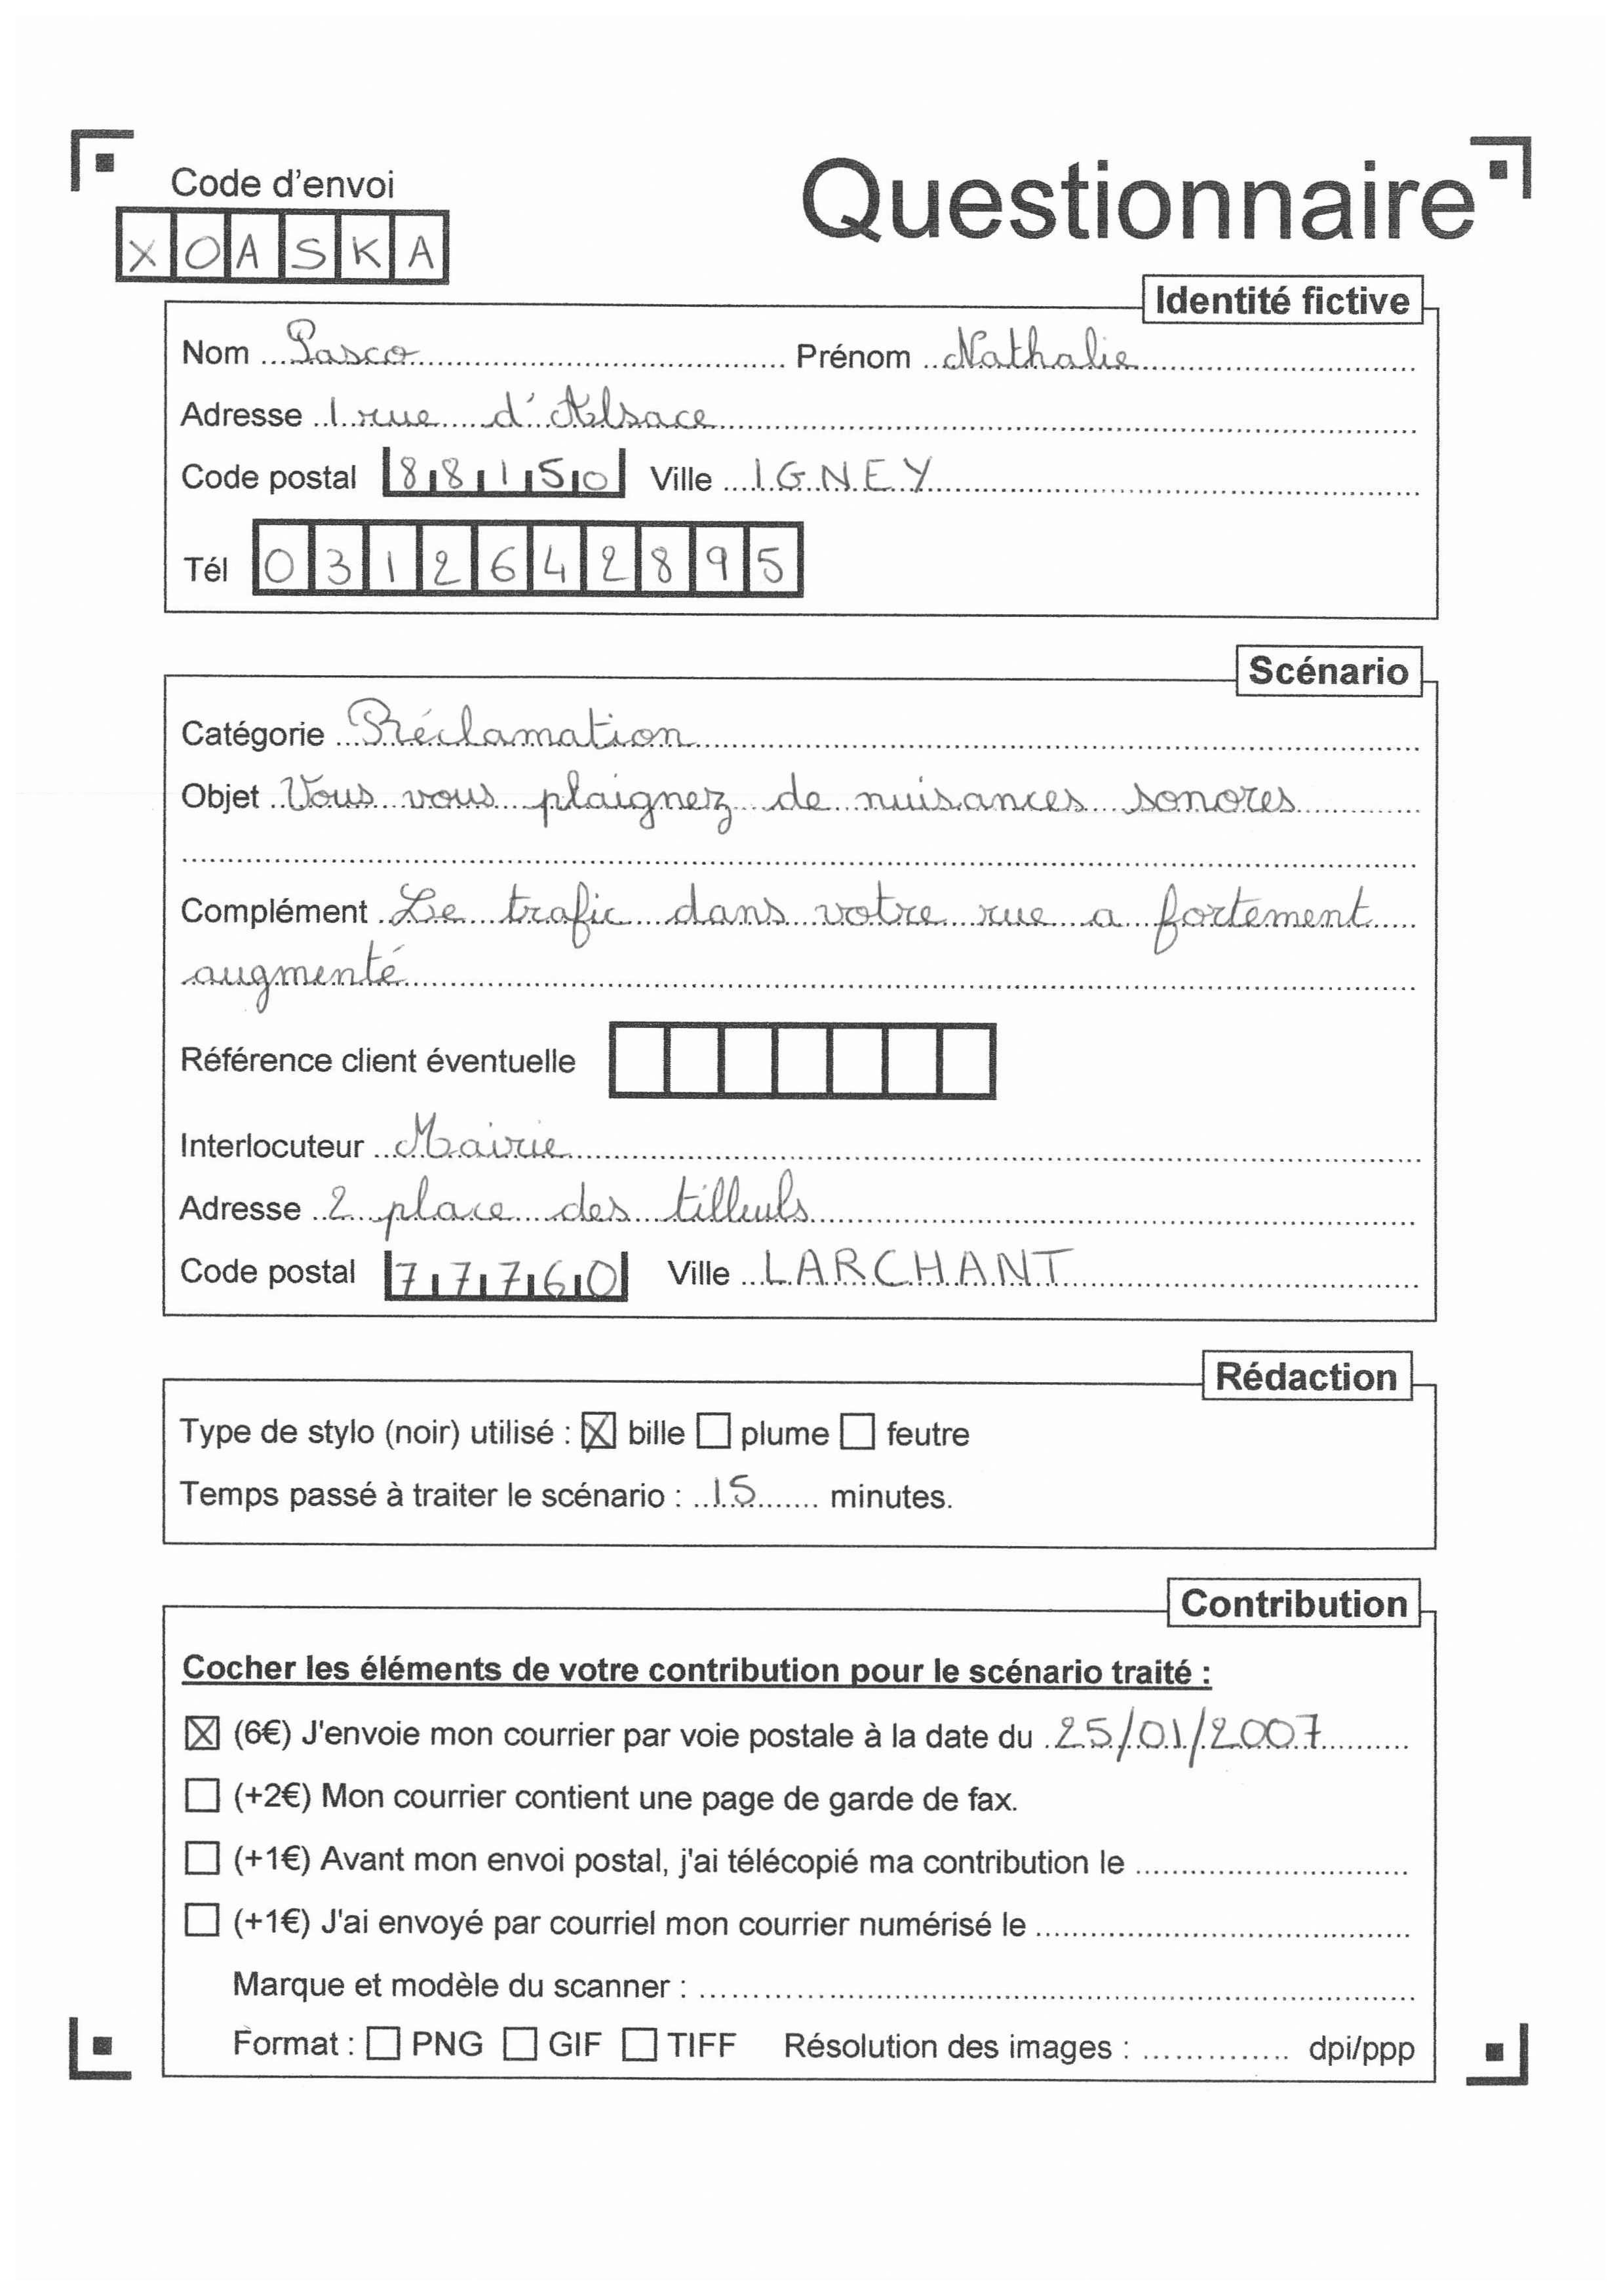 Code d'envoi
XOASKA
Questionnaire
Identité fictive
Nom Pasco Prénom Nathalie
Adresse 1 rue d'Alsace
Code postal 88150 Ville IGNEY
Tél 0312642895
Scénario
Catégorie Réclamation
Objet Vous vous plaignez de nuisances sonores
Complément Le trafic dans votre rue a fortement
augmenté
Référence client éventuelle
Interlocuteur Mairie
Adresse 2 place des tilleuls
Code postal 77760 Ville LARCHANT
Rédaction
Type de stylo (noir) utilisé : ☒ bille ☐ plume ☐ feutre
Temps passé à traiter le scénario : 15 minutes.
Contribution
Cocher les éléments de votre contribution pour le scénario traité :
☒ (6€) J'envoie mon courrier par voie postale à la date du 25/01/2007
☐ (+2€) Mon courrier contient une page de garde de fax.
☐ (+1€) Avant mon envoi postal, j'ai télécopié ma contribution le
☐ (+1€) J'ai envoyé par courriel mon courrier numérisé le
Marque et modèle du scanner :
Format : ☐ PNG ☐ GIF ☐ TIFF Résolution des images : dpi/ppp